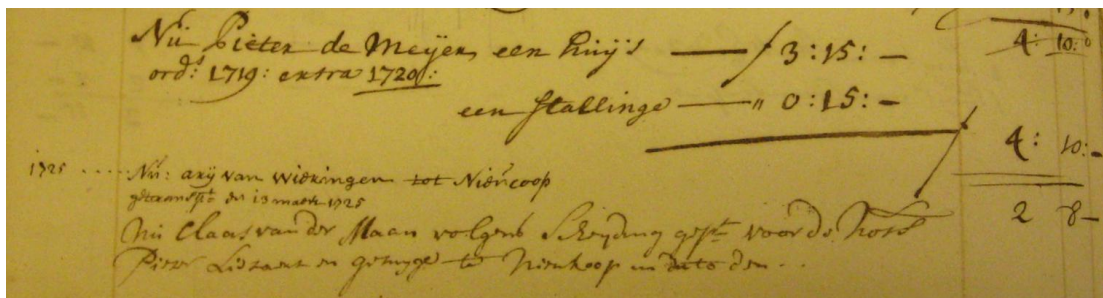 4: 10: 0
Nu Pieter de Meijer een huijs — f 3:15: —
ord.s 1719: extra 1720:
een stallinge — " 0:15: —
f 4: 10: -
1725 ..... Nu: arij van wieringen tot Nieucoop
getransp.t den 13 maert 1725
Nu Claas van der Maan volgens Scheijding gep.t voor de Not.s 2 8 -
Pieter en getuijge te Nieukoop in dato den ...